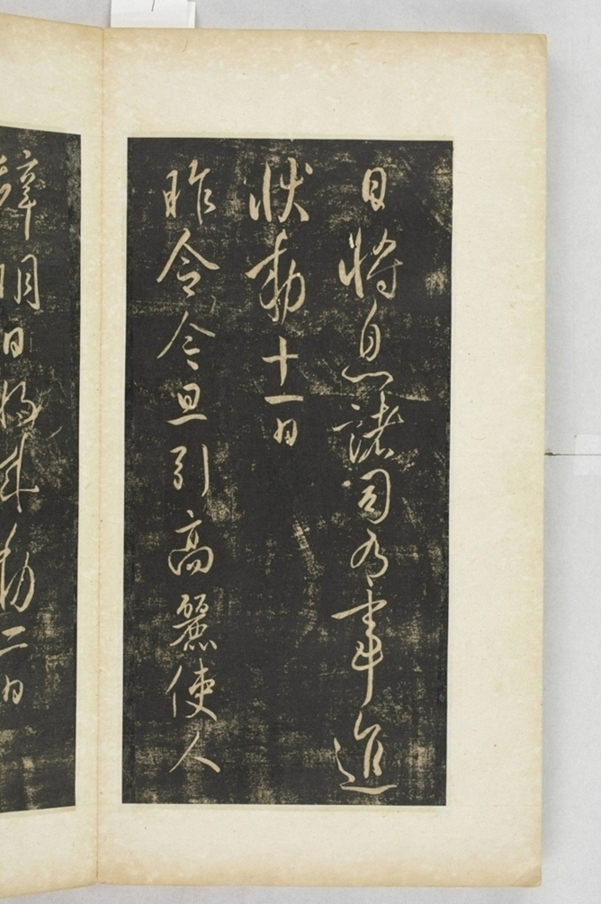 日將息諸司有事進
狀勅十一日
昨令今旦引高麗使人
辭明日將來勅二日